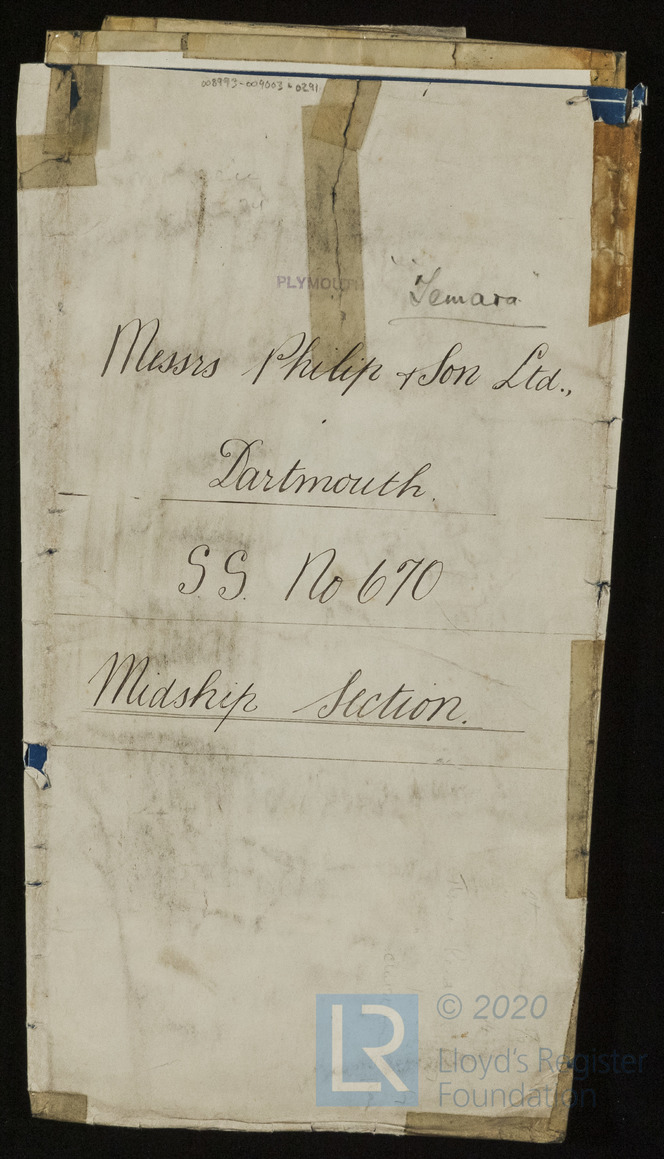 008993-009003 & 0291
PLYMOUTH
"Temara"
Messrs Philip & Son Ltd.,
Dartmouth.
S.S. No 670
Midship Section.
LR
© 2020
Lloyd's Register
Foundation